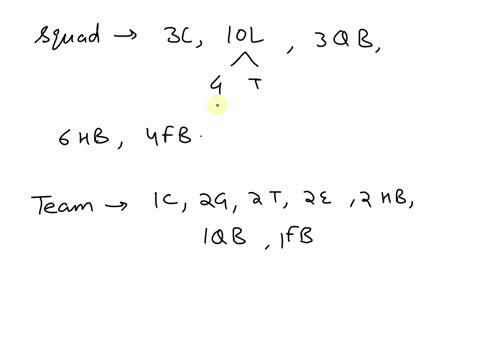 Squad → 3C, 10L, 3QB,
G T
6HB, 4FB.
Team → 1C, 2G, 2T, 2E, 2HB,
1QB, 1FB